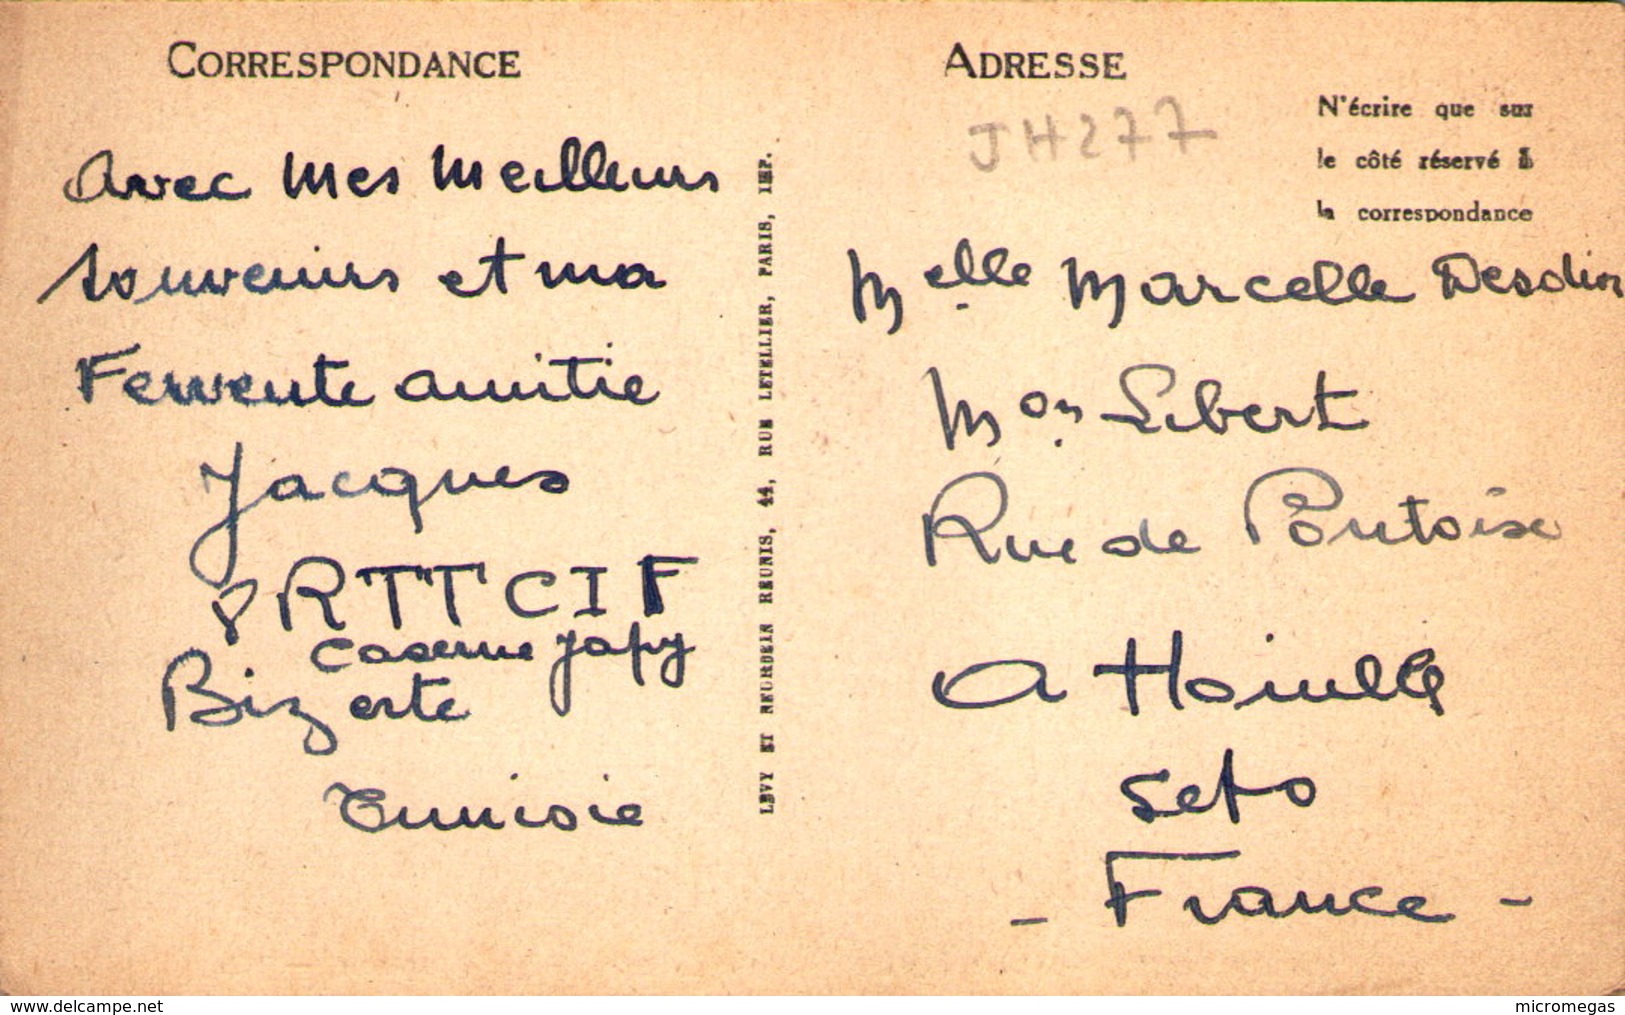 CORRESPONDANCE
Avec Mes Meilleurs
Souvenirs et ma
Fervente amitie
Jacques
RTTCIF
Caserne Japy
Bizerte
Tunisie
LEVY ET NEURDEIN REUNIS, 44, RUE LETELLIER, PARIS, IMP.
ADRESSE
JH277
N'écrire que sur
le côté réservé à
la correspondance
Melle Marcelle
Mon Libert
Rue de Pontoise
A
S et O
- France -
www.delcampe.net
micromegas